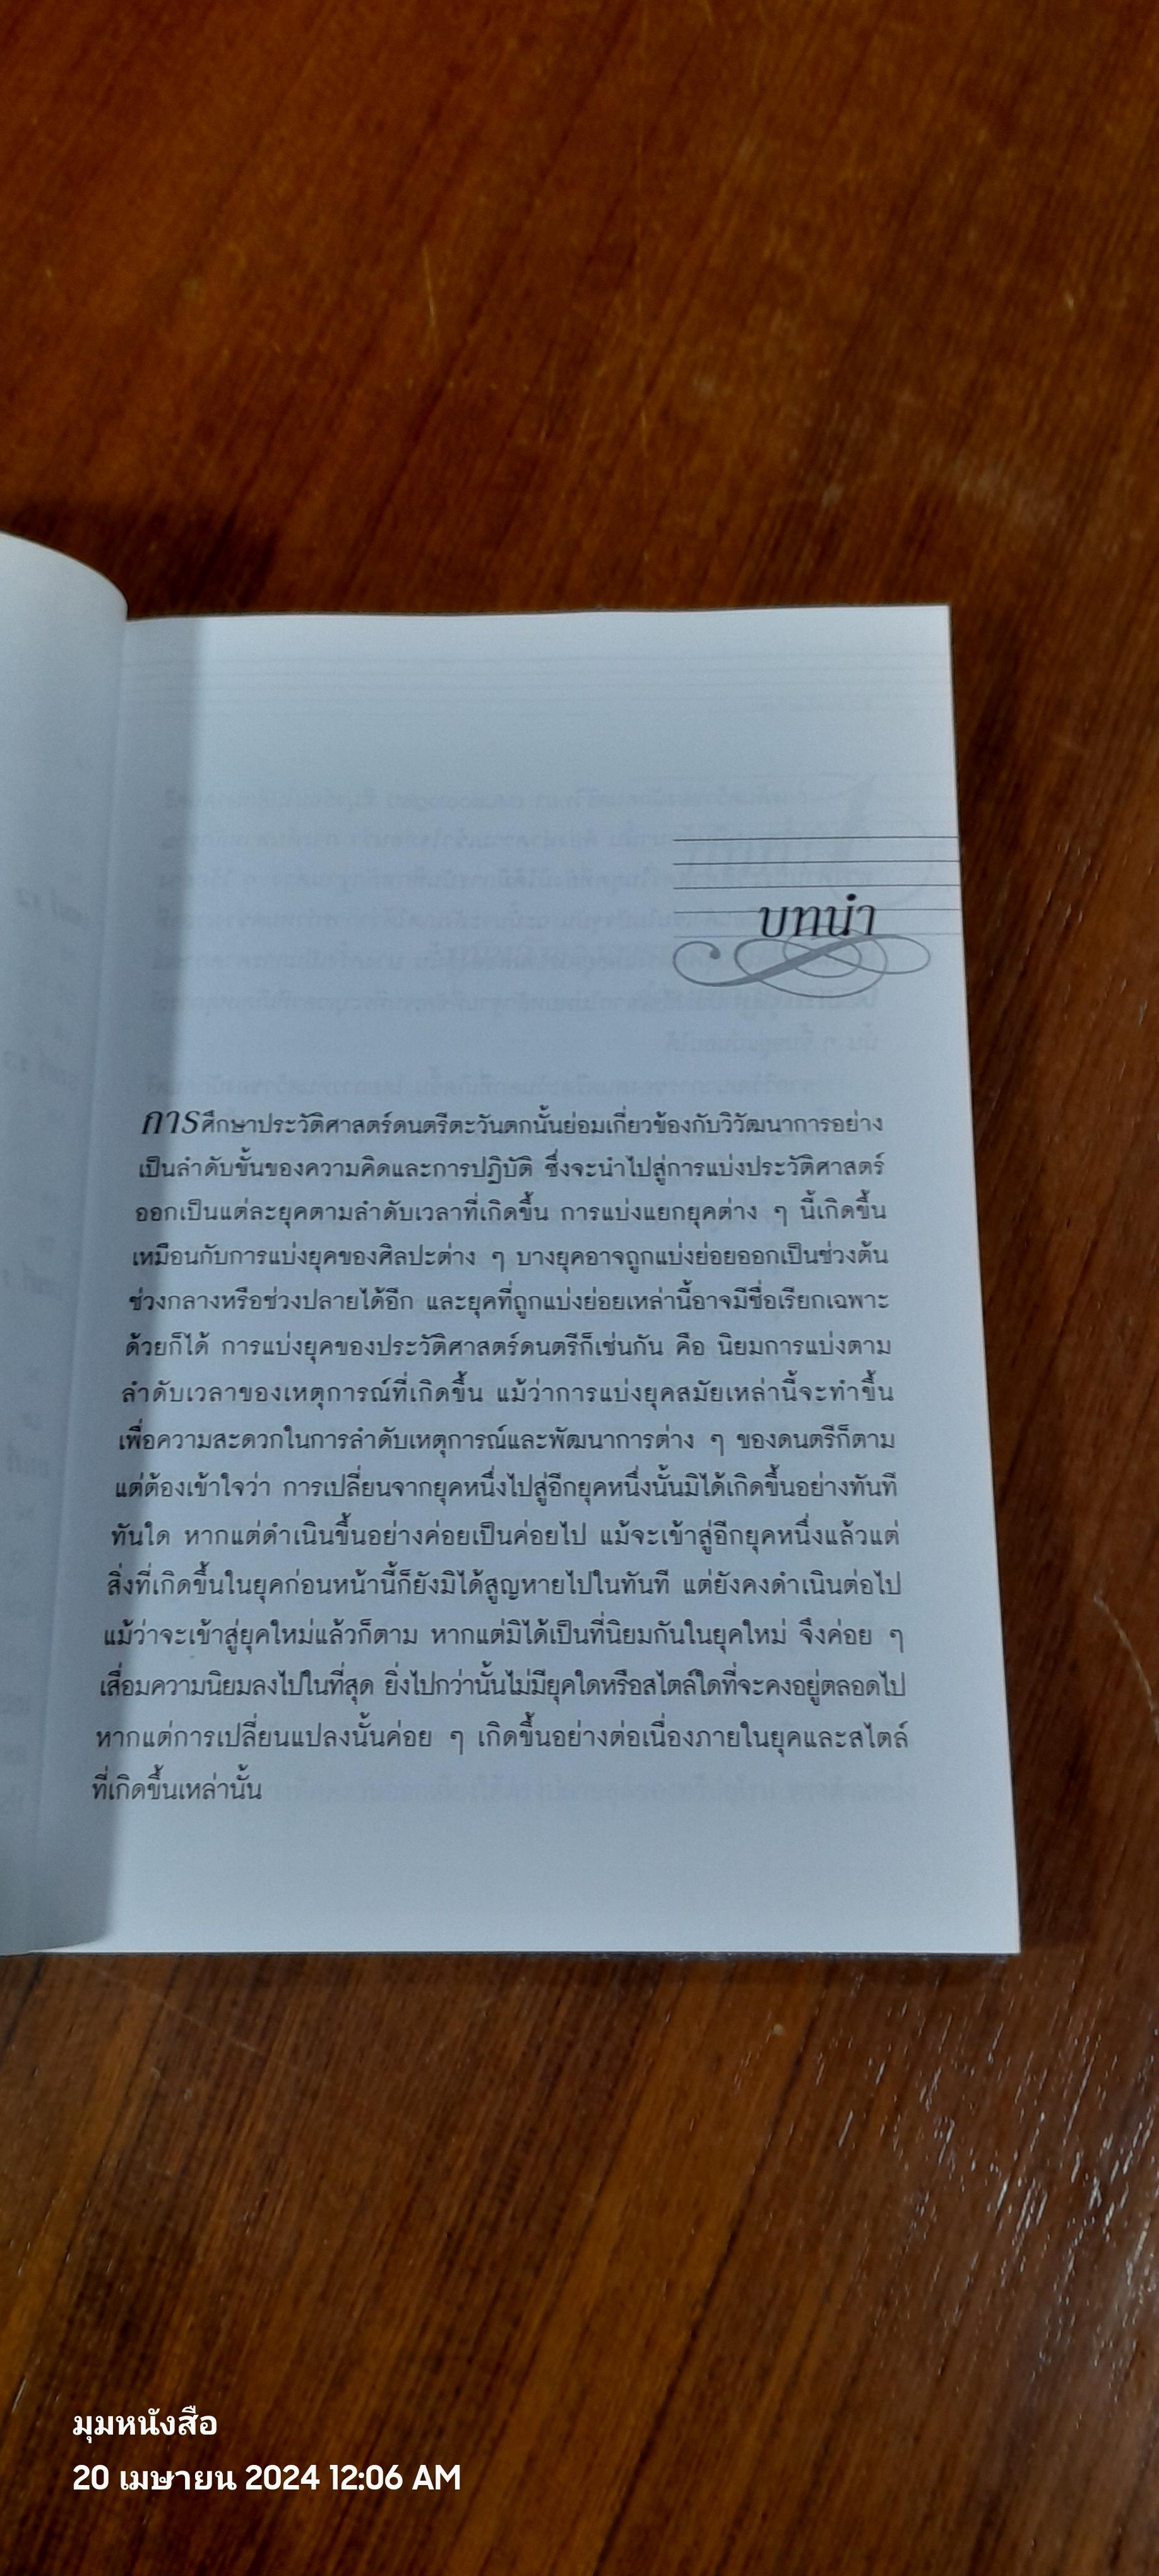 บทนำ
การศึกษาประวัติศาสตร์ดนตรีตะวันตกนั้นย่อมเกี่ยวข้องกับวิวัฒนาการอย่าง
เป็นลำดับขั้นของความคิดและการปฏิบัติ ซึ่งจะนำไปสู่การแบ่งประวัติศาสตร์
ออกเป็นแต่ละยุคตามลำดับเวลาที่เกิดขึ้น การแบ่งแยกยุคต่าง ๆ นี้เกิดขึ้น
เหมือนกับการแบ่งยุคของศิลปะต่าง ๆ บางยุคอาจถูกแบ่งย่อยออกเป็นช่วงต้น
ช่วงกลางหรือช่วงปลายได้อีก และยุคที่ถูกแบ่งย่อยเหล่านี้อาจมีชื่อเรียกเฉพาะ
ด้วยก็ได้ การแบ่งยุคของประวัติศาสตร์ดนตรีก็เช่นกัน คือ นิยมการแบ่งตาม
ลำดับเวลาของเหตุการณ์ที่เกิดขึ้น แม้ว่าการแบ่งยุคสมัยเหล่านี้จะทำขึ้น
เพื่อความสะดวกในการลำดับเหตุการณ์และพัฒนาการต่าง ๆ ของดนตรีก็ตาม
แต่ต้องเข้าใจว่า การเปลี่ยนจากยุคหนึ่งไปสู่อีกยุคหนึ่งนั้นมิได้เกิดขึ้นอย่างทันที
ทันใด หากแต่ดำเนินขึ้นอย่างค่อยเป็นค่อยไป แม้จะเข้าสู่อีกยุคหนึ่งแล้วแต่
สิ่งที่เกิดขึ้นในยุคก่อนหน้านี้ก็ยังมิได้สูญหายไปในทันที แต่ยังคงดำเนินต่อไป
แม้ว่าจะเข้าสู่ยุคใหม่แล้วก็ตาม หากแต่มิได้เป็นที่นิยมกันในยุคใหม่ จึงค่อย ๆ
เสื่อมความนิยมลงไปในที่สุด ยิ่งไปกว่านั้นไม่มียุคใดหรือสไตล์ใดที่จะคงอยู่ตลอดไป
หากแต่การเปลี่ยนแปลงนั้นค่อย ๆ เกิดขึ้นอย่างต่อเนื่องภายในยุคและสไตล์
ที่เกิดขึ้นเหล่านั้น
มุมหนังสือ
20 เมษายน 2024 12:06 AM